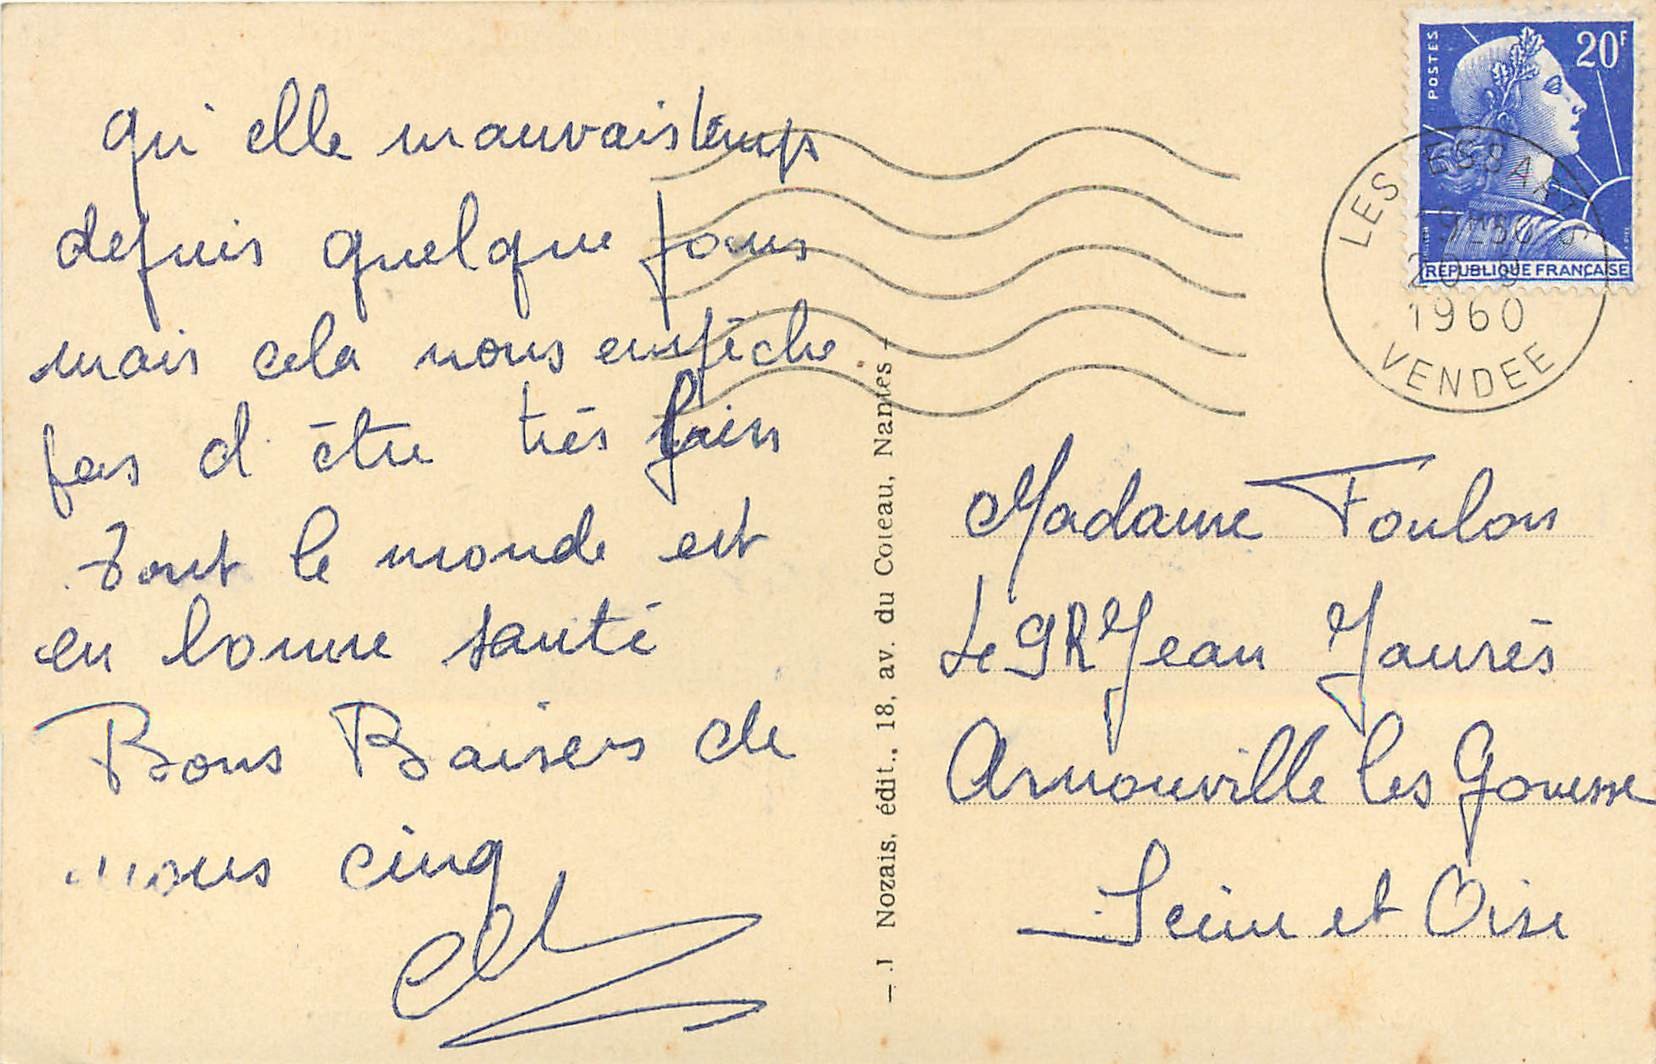 qui elle mauvais temps
depuis quelque jours
mais cela nous empêche
pas d'être très bien
Tout le monde est
en bonne santé
Bons Baisers de
nous cinq
J Nozais, édit., 18, av. du Coteau, Nantes
POSTES
20F
REPUBLIQUE FRANÇAISE
LES ESSARTS
1960
VENDEE
Madame Foulon
Le 9R Jean Jaurès
Arnouville les Gonesse
Seine et Oise